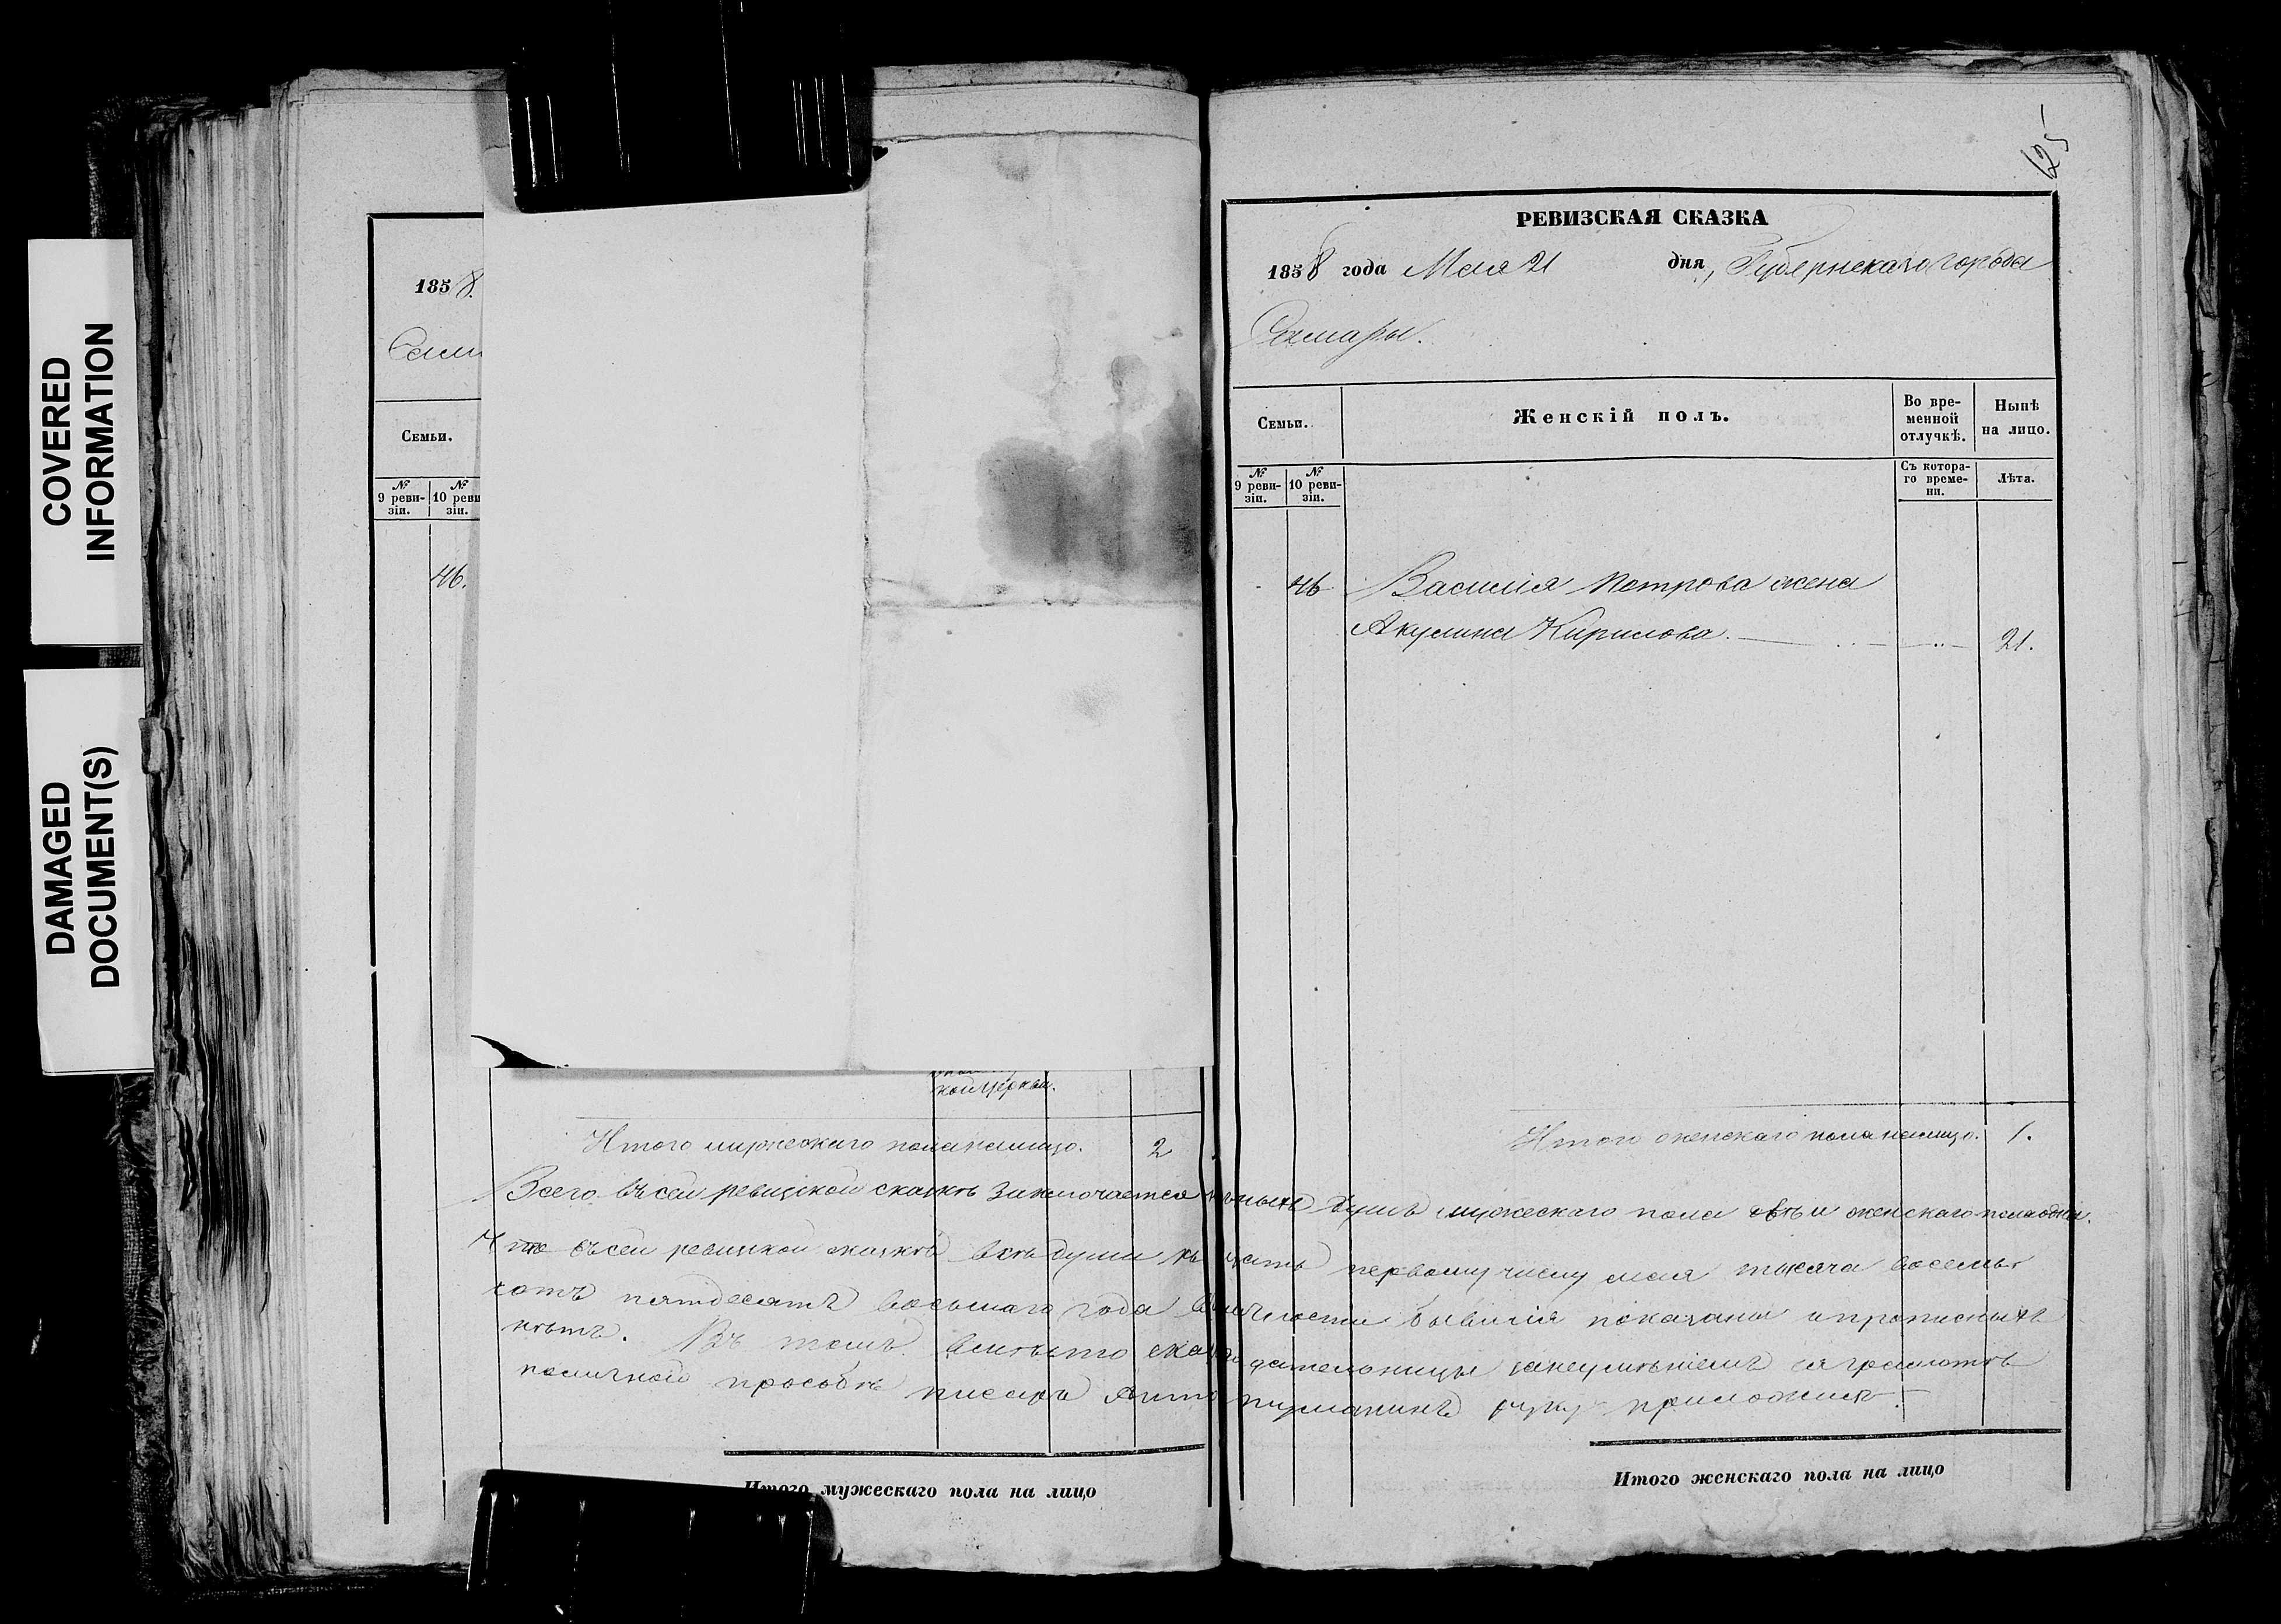 COVERED
INFORMATION
DAMAGED
DOCUMENT(S)
1858.
Сам
Семьи.
№ 9 реви-зіи. № 10 реви зіи.
46.
кой церкви.
Итого мужескаго пола налицо. 2
125
РЕВИЗСКАЯ СКАЗКА
1858 года Мая 21 дня, Губернскаго города
Самары.
Семьи. Женскій полъ. Во вре-менной отлучкѣ. Нынѣ на лицо.
№ 9 реви-зіи. № 10 реви-зіи. Съ котора-го време-ни. Лѣта.
46 Василія Петрова жена
Акулина Кирилова. 21.
Итого женскаго пола налицо. 1.
Всего въ сей ревизской сказкѣ заключается душъ мужескаго пола двѣ и женскаго пола одна.
Что въ сей ревизской сказкѣ всѣ души къ первому числу мая тысяча восемь
сотъ пятдесятъ восьмаго года бывшія показаны и прописныхъ
нѣтъ. Въ томъ вмѣсто неумѣніемъ грамотѣ
по личной просьбѣ писарь руку приложилъ.
Итого мужескаго пола на лицо
Итого женскаго пола на лицо